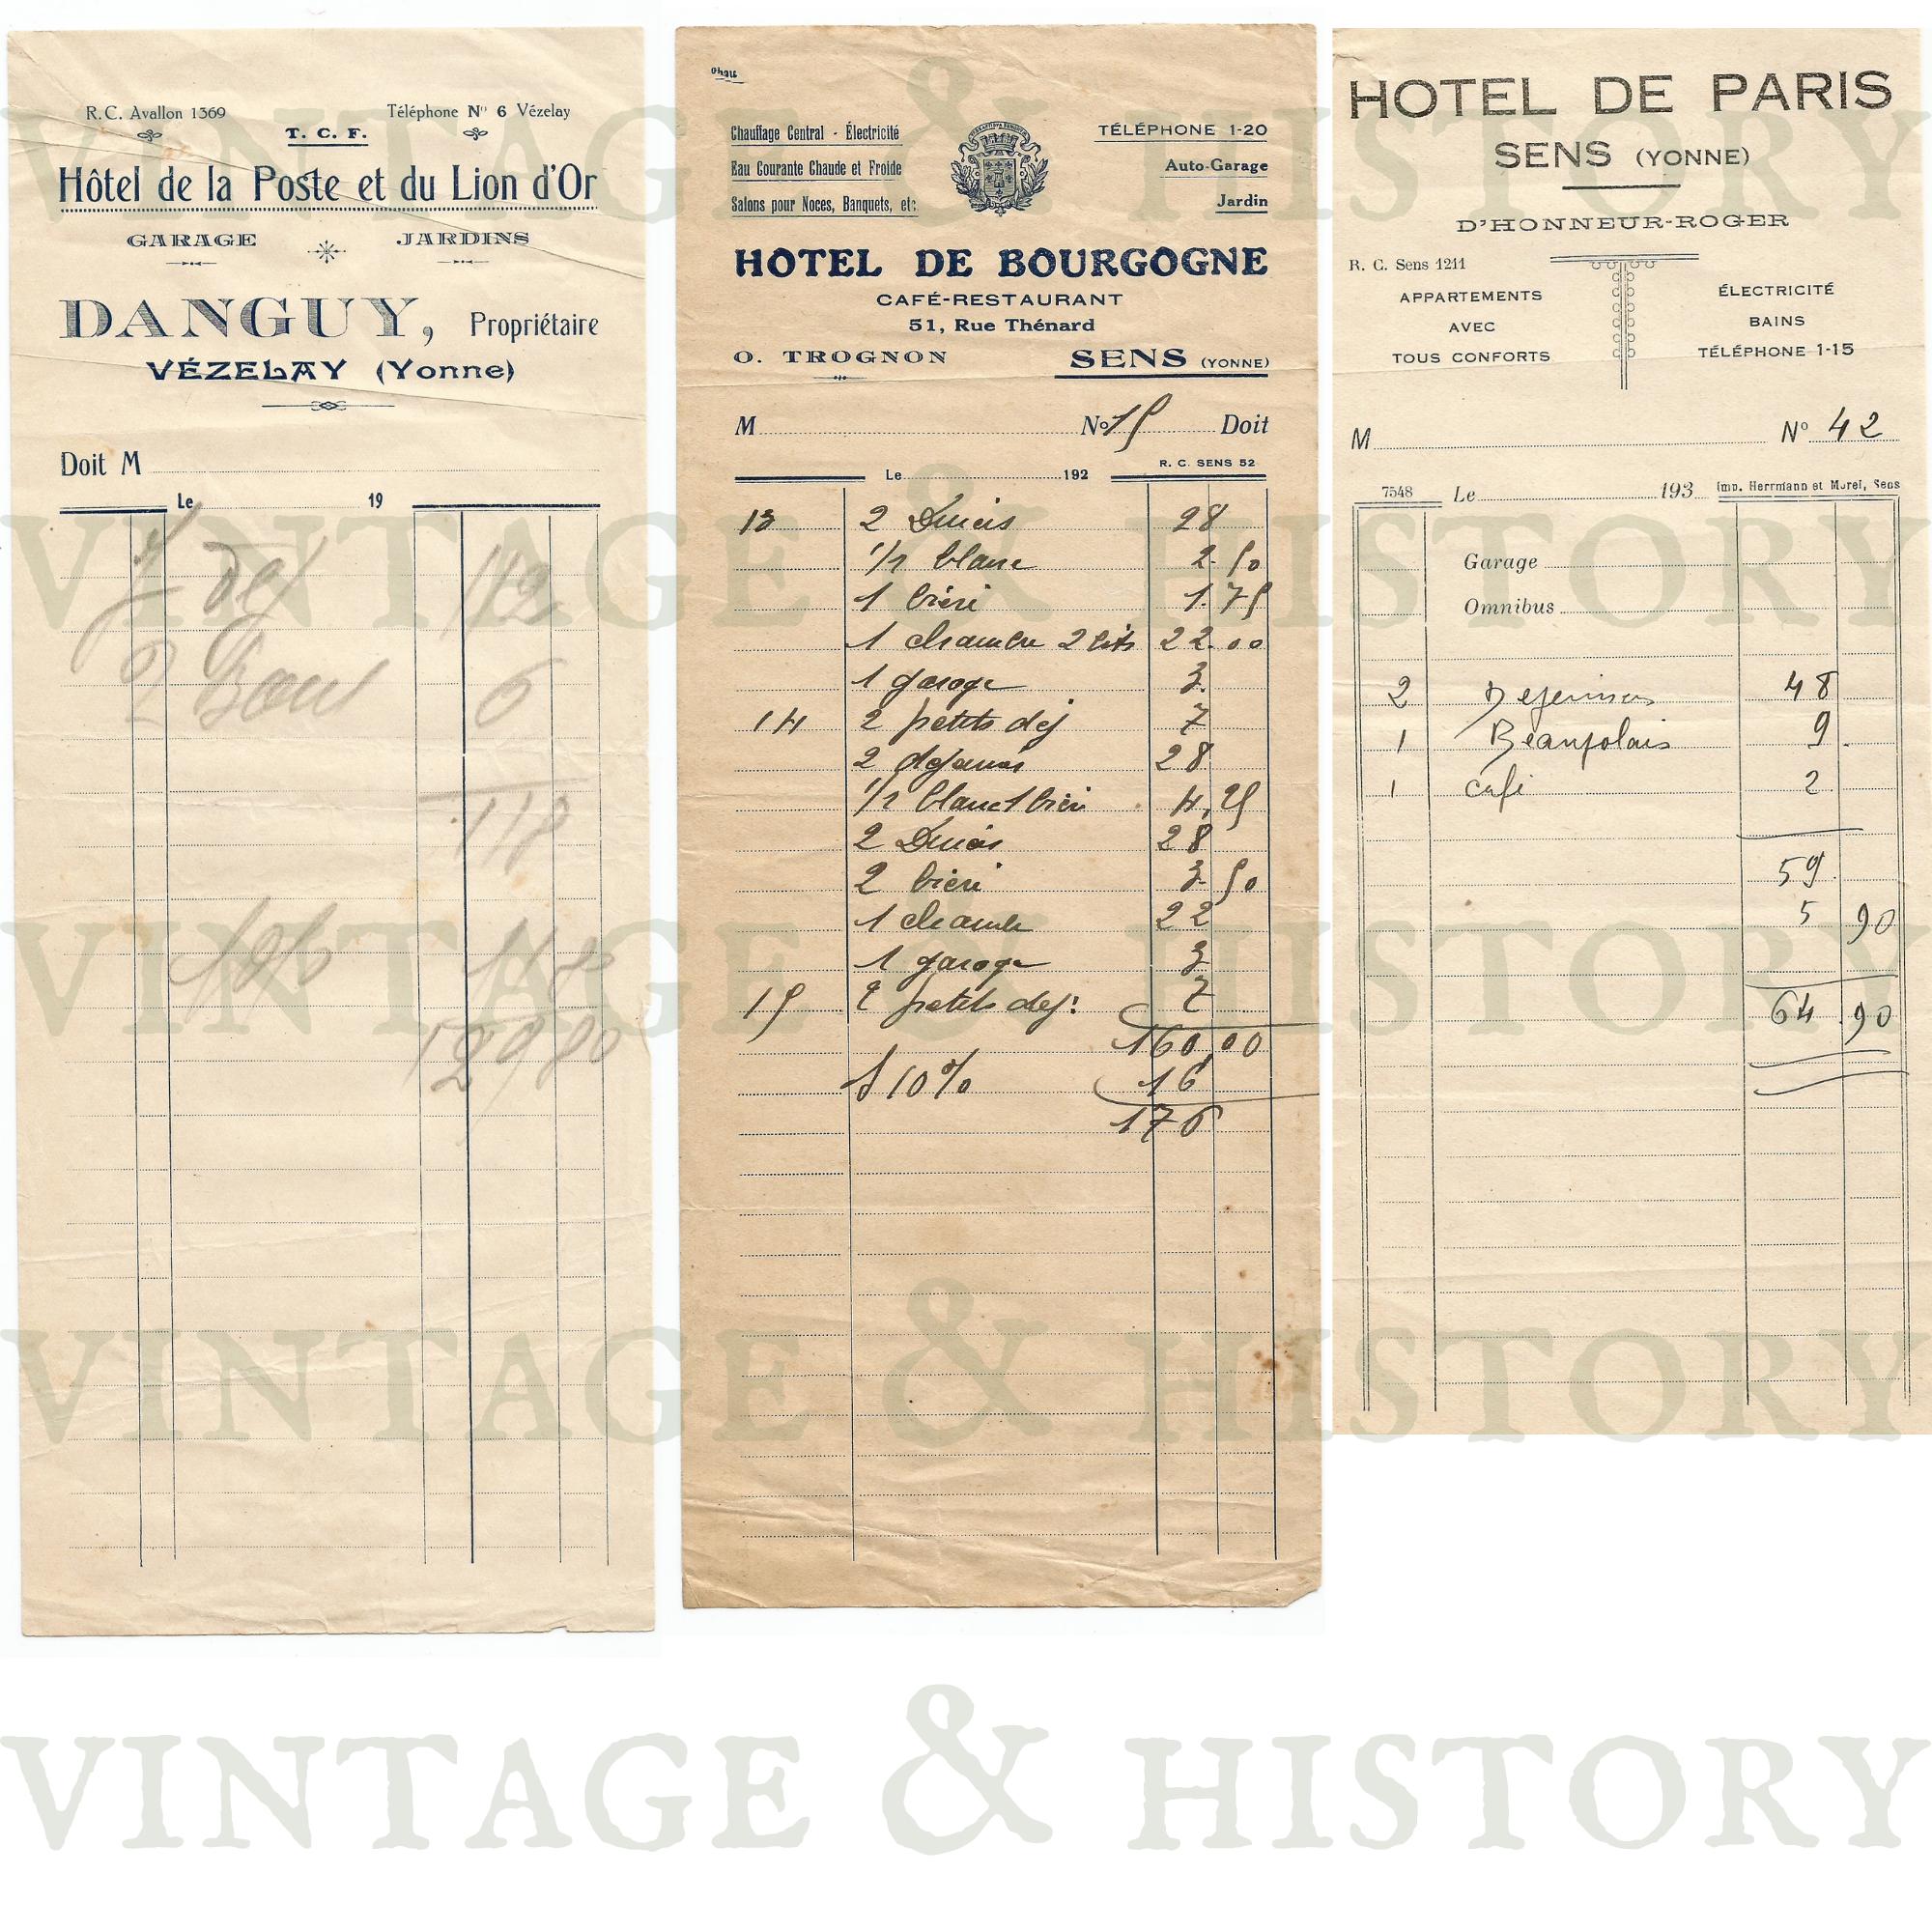 R.C. Avallon 1369
Téléphone Nº 6 Vézelay
T. C. F.
Hôtel de la Poste et du Lion d'Or
GARAGE
JARDINS
DANGUY, Propriétaire
VÉZELAY (Yonne)
Doit M
Le 19
112
2 6
118
10%
11 80
129 80
Chauffage Central - Électricité
Eau Courante Chaude et Froide
Salons pour Noces, Banquets, etc
TÉLÉPHONE 1-20
Auto-Garage
Jardin
HOTEL DE BOURGOGNE
CAFÉ-RESTAURANT
51, Rue Thénard
O. TROGNON SENS (YONNE)
M Nº 15 Doit
Le 192 R. C. SENS 52
13 2 Diners 28
1/2 blanc 2.50
1 bière 1.75
1 chambre 2 lits 22.00
1 garage 3.
14 2 petits dej 7
2 dejeuners 28
1/2 blanc 1 bière 4,25
2 Diners 28
2 bière 3.50
1 chambre 22
1 garage 3
15 2 petits dej: 7
160,00
S 10% 16
176
HOTEL DE PARIS
SENS (YONNE)
D'HONNEUR-ROGER
R. C. Sens 1211
APPARTEMENTS
AVEC
TOUS CONFORTS
ÉLECTRICITÉ
BAINS
TÉLÉPHONE 1-15
M Nº 42
7548 Le 193 Imp. Herrmann et Morel, Sens
Garage
Omnibus
2 Dejeuners 48
1 Beaujolais 9.
1 café 2.
59.
5 90
64.90
VINTAGE & HISTORY
VINTAGE & HISTORY
VINTAGE & HISTORY
VINTAGE & HISTORY
VINTAGE & HISTORY